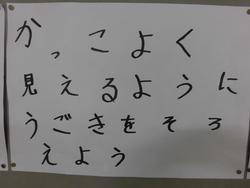 かっこよく
見えるように
うごきをそろ
えよう